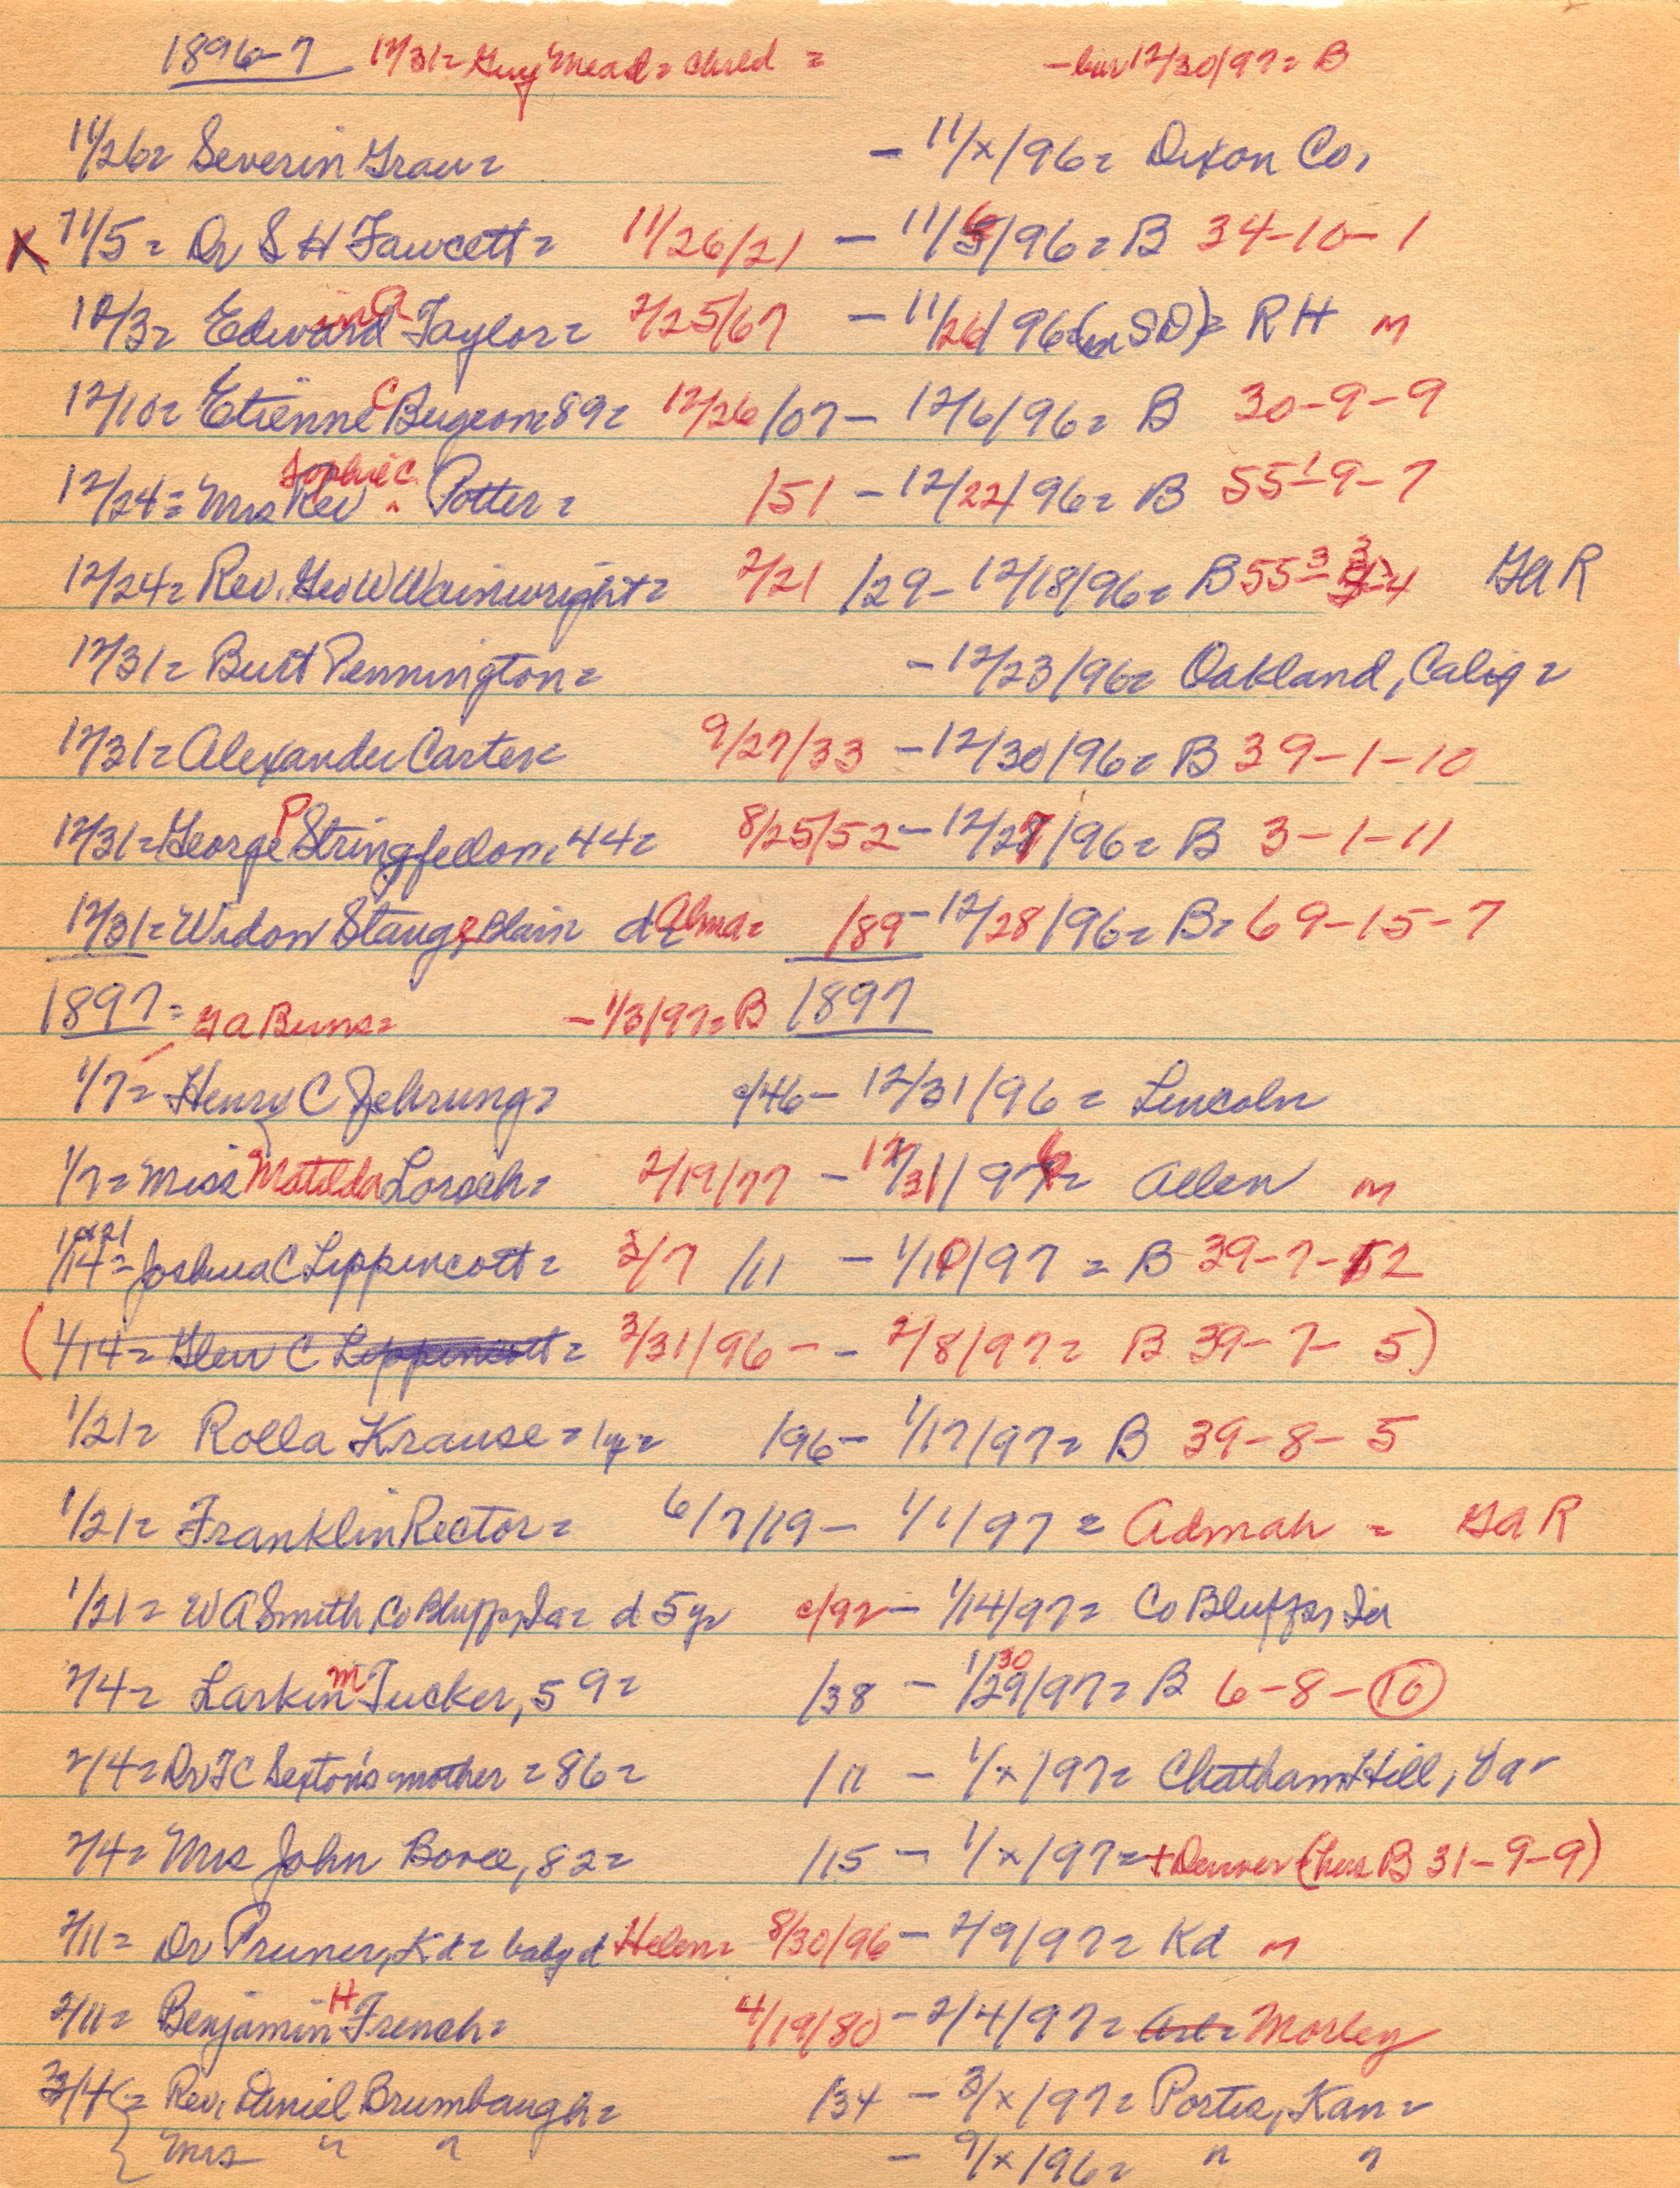 1896-7 12/31= Guy Mead= child = - bur 12/30/97= B
11/26= Severin Grau= - 11/x/96= Dixon Co.
X 11/5= Dr S H Fawcett= 11/26/21 - 11/6/96= B 34-10-1
12/3= Edwin A Taylor= 2/25/67 - 11/26/96=(in SD)= RH m
12/10= Etienne C Bugeon=89= 12/26/07- 12/6/96= B 30-9-9
12/24= Mrs Rev Sophie C Potter= /51 -12/22/96= B 55¹-9-7
12/24= Rev. Geo W Wainwright= 2/21/29- 12/18/96= B 55³-3-4 GAR
12/31= Burt Pennington= -12/23/96= Oakland, Calif=
12/31= Alexander Carter= 9/27/33 -12/30/96= B 39-1-10
12/31= George P Stringfellow, 44= 8/25/52-12/27/96= B 3-1-11
12/31= Widow Stange Blair d= Alma= /89-12/28/96= B= 69-15-7
1897= G A Burns= -1/3/97=B 1897
1/7= Henry C Jehrung= c/46- 12/31/96= Lincoln
1/7= Miss Matilda Lorsch= 2/19/77 - 12/31/96= Allen m
1/14= 1 or 21 Joshua C Lippincott= 3/7/11 - 1/10/97 = B 39-7-12
(1/14= Glen C Lippencott= 3/31/96- - 2/8/97= B 39-7-5)
1/21= Rolla Krause=1yr= /96- 1/17/97= B 39-8-5
1/21= Franklin Rector= 6/7/19- 1/1/97= Admah = GAR
1/21= W A Smith, Co Bluffs, Ia= d 5yr c/92- 1/14/97= Co Bluffs, Ia
2/4= Larkin M Tucker, 59= /38 - 1/29 30/97= B 6-8-10
2/4= Dr F C Sexton's mother=86= /11 - 1/x/97= Chatham Hill, Va
2/4= Mrs John Boree, 82= /15 - 1/x/97=+Denver (hus B 31-9-9)
2/11= Dr Pruner, Kd= baby d Helen= 8/30/96- 2/9/97= Kd m
2/11= Benjamin H French= 4/19/80-2/4/97= Arl= Morley
3/4= Rev. Daniel Brumbaugh= /34 - 3/x/97= Portis, Kan=
Mrs " " - 9/x/96= " "